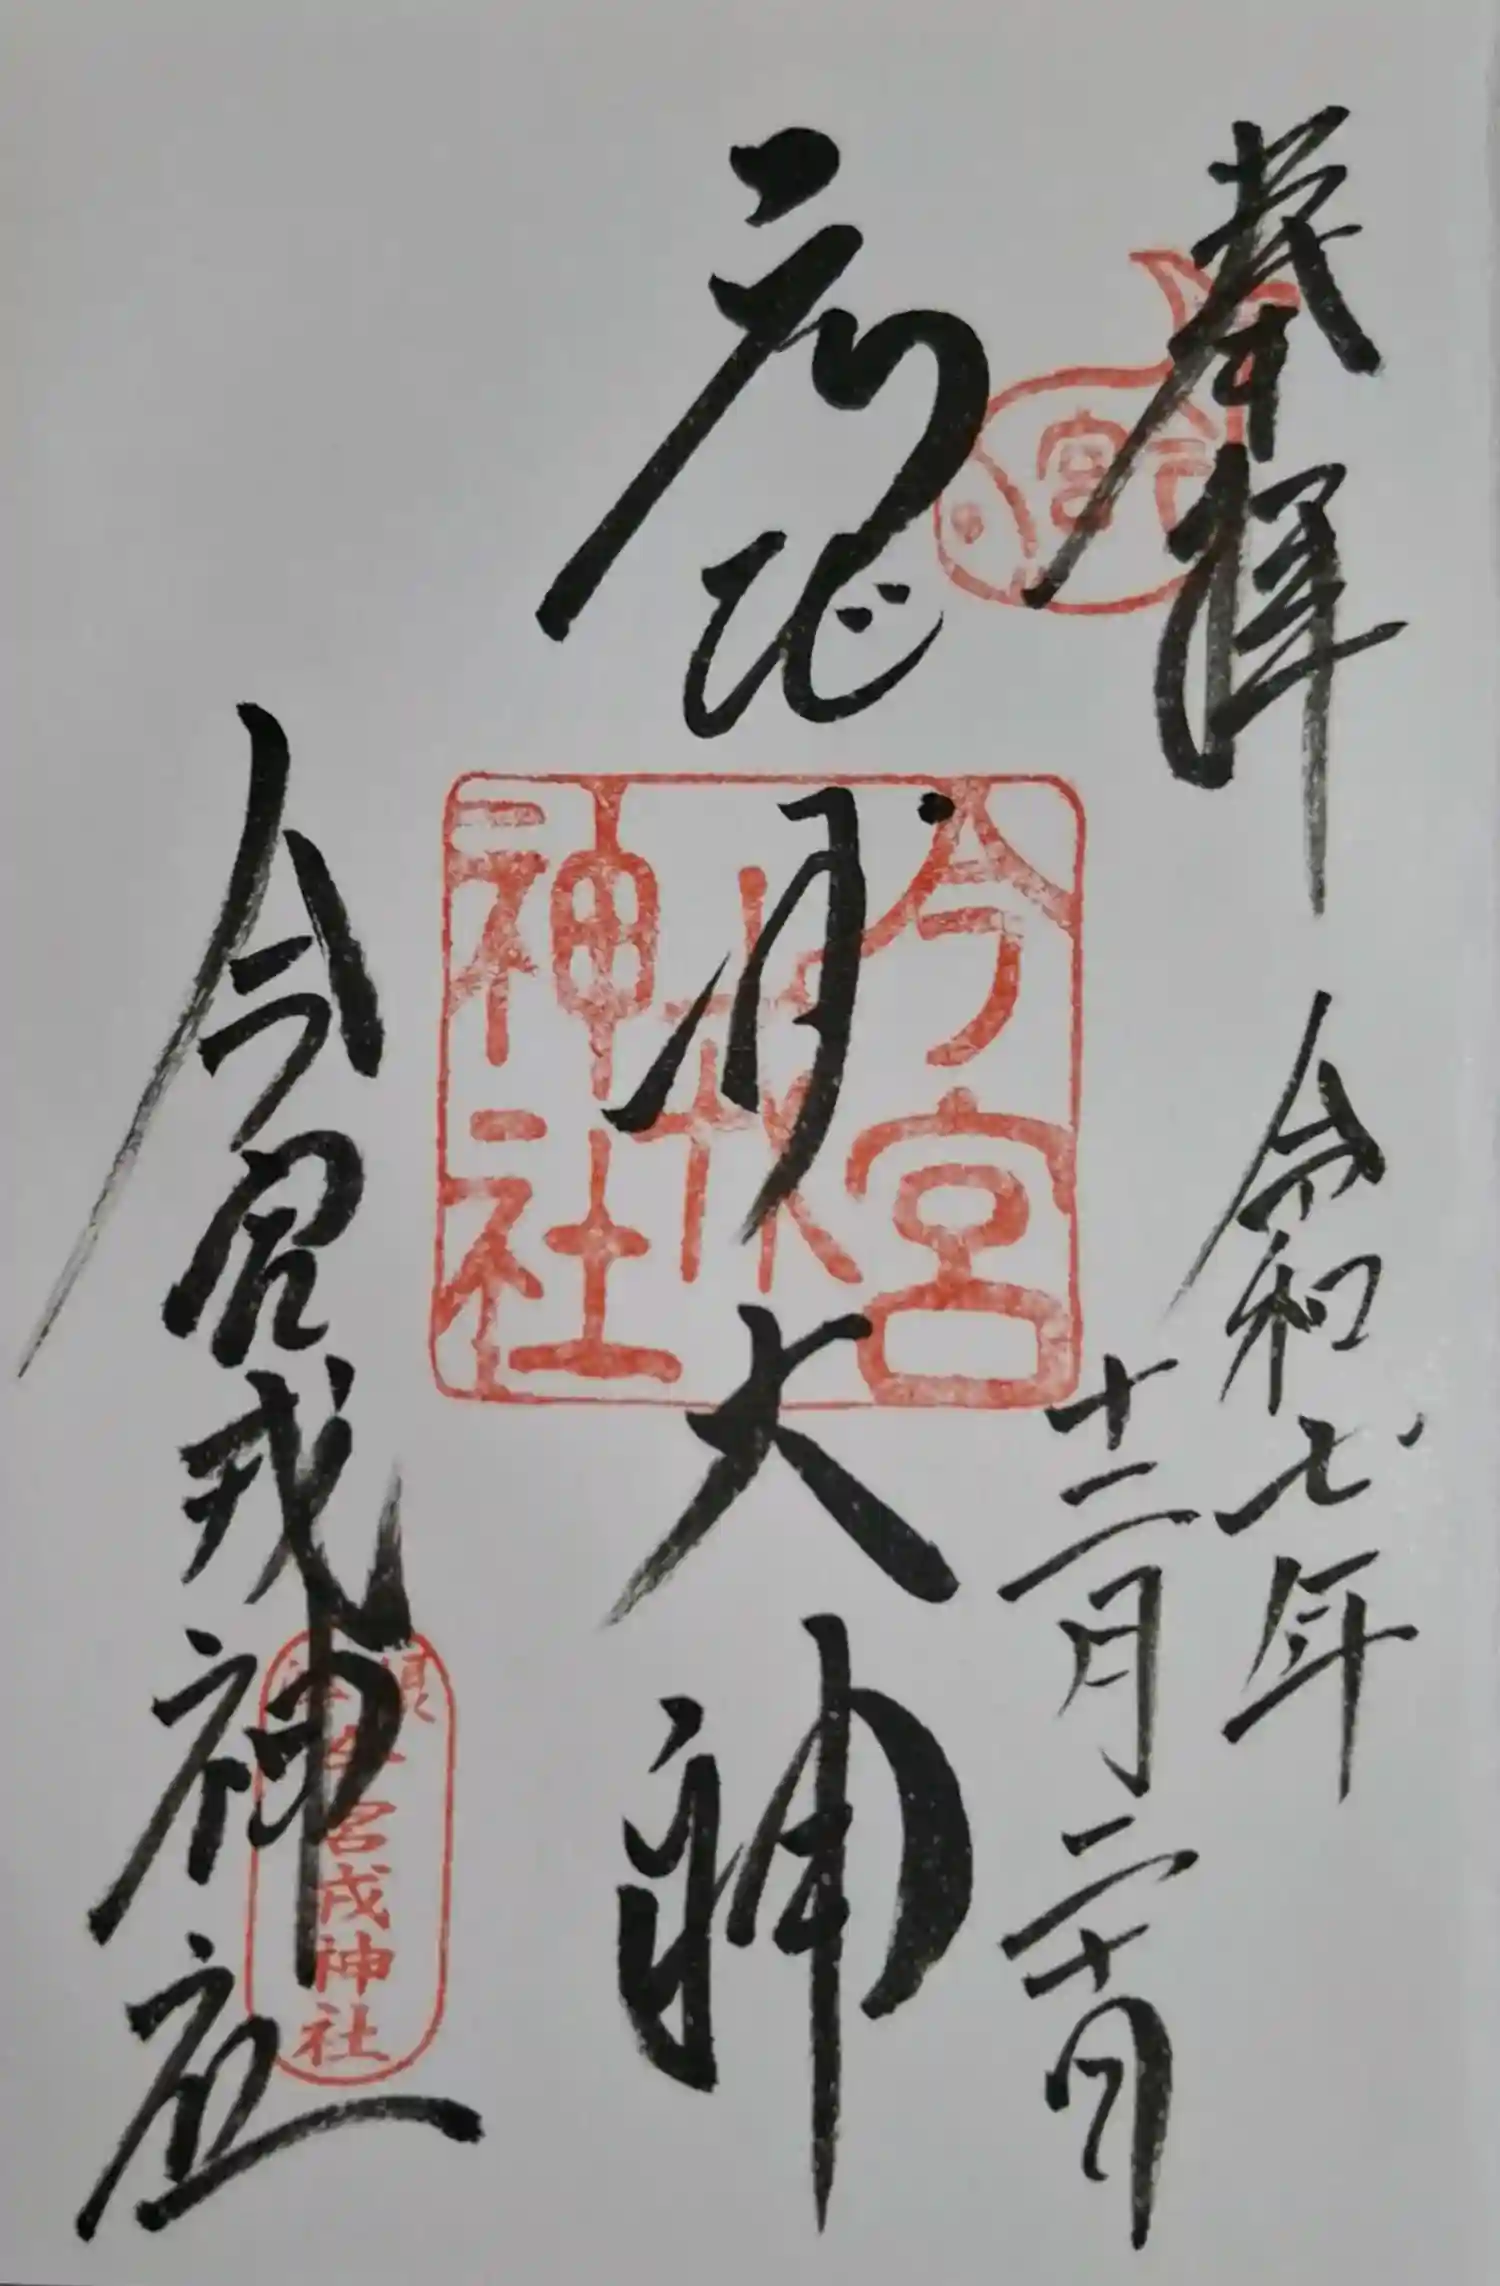 奉拝
令和七年
十二月二十日
今宮
大神
今宮戎神社
今宮戎神社
今宮戎神社